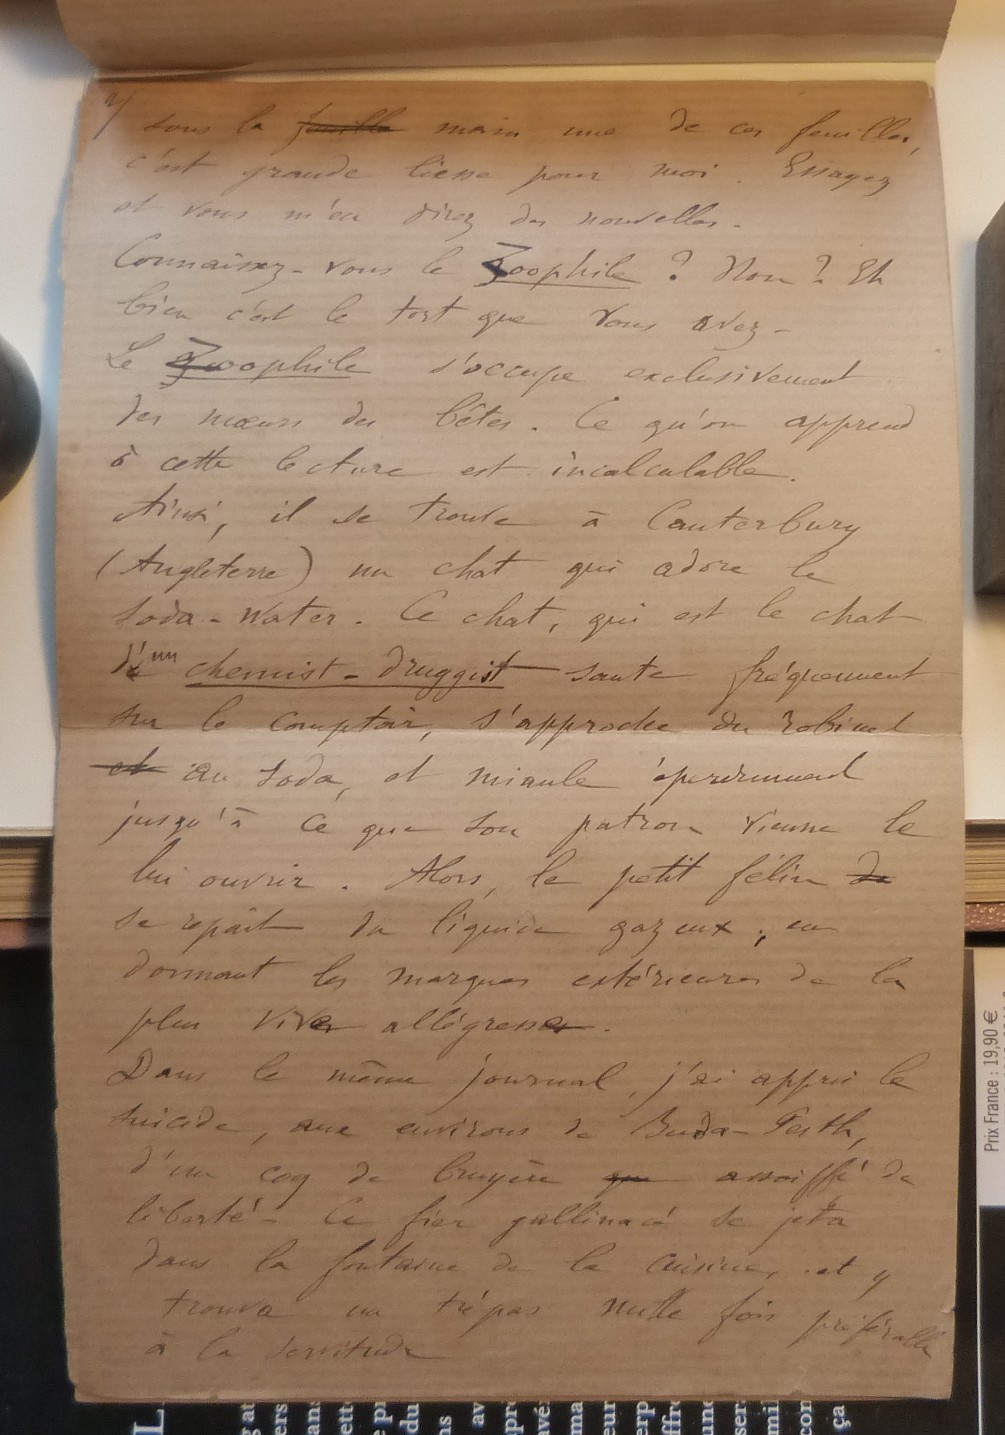 2/
sous la feuille main une de ces feuilles,
c'est grande liesse pour moi. Essayez
et vous m'en direz des nouvelles.
Connaissez-vous le Zoophile ? Non ? Eh
bien c'est le tort que vous avez -
Le Zoophile s'occupe exclusivement
des mœurs des bêtes. Ce qu'on apprend
à cette lecture est incalculable.
Ainsi, il se trouve à Canterbury
(Angleterre) un chat qui adore le
soda-water. Ce chat, qui est le chat
d'un chemist-druggist saute fréquemment
sur le comptoir, s'approche du robinet
et au soda, et miaule éperdument
jusqu'à ce que son patron vienne le
lui ouvrir. Alors, le petit félin de
se repaît du liquide gazeux, en
donnant les marques extérieures de la
plus vives allégresses.
Dans le même journal, j'ai appris le
suicide, aux environs de Buda-Pesth,
d'un coq de bruyère qu assoiffé de
liberté - Ce fier gallinacé se jeta
dans la fontaine de la cuisine, et y
trouva un trépas mille fois préférable
à la servitude
Prix France : 19,90 €